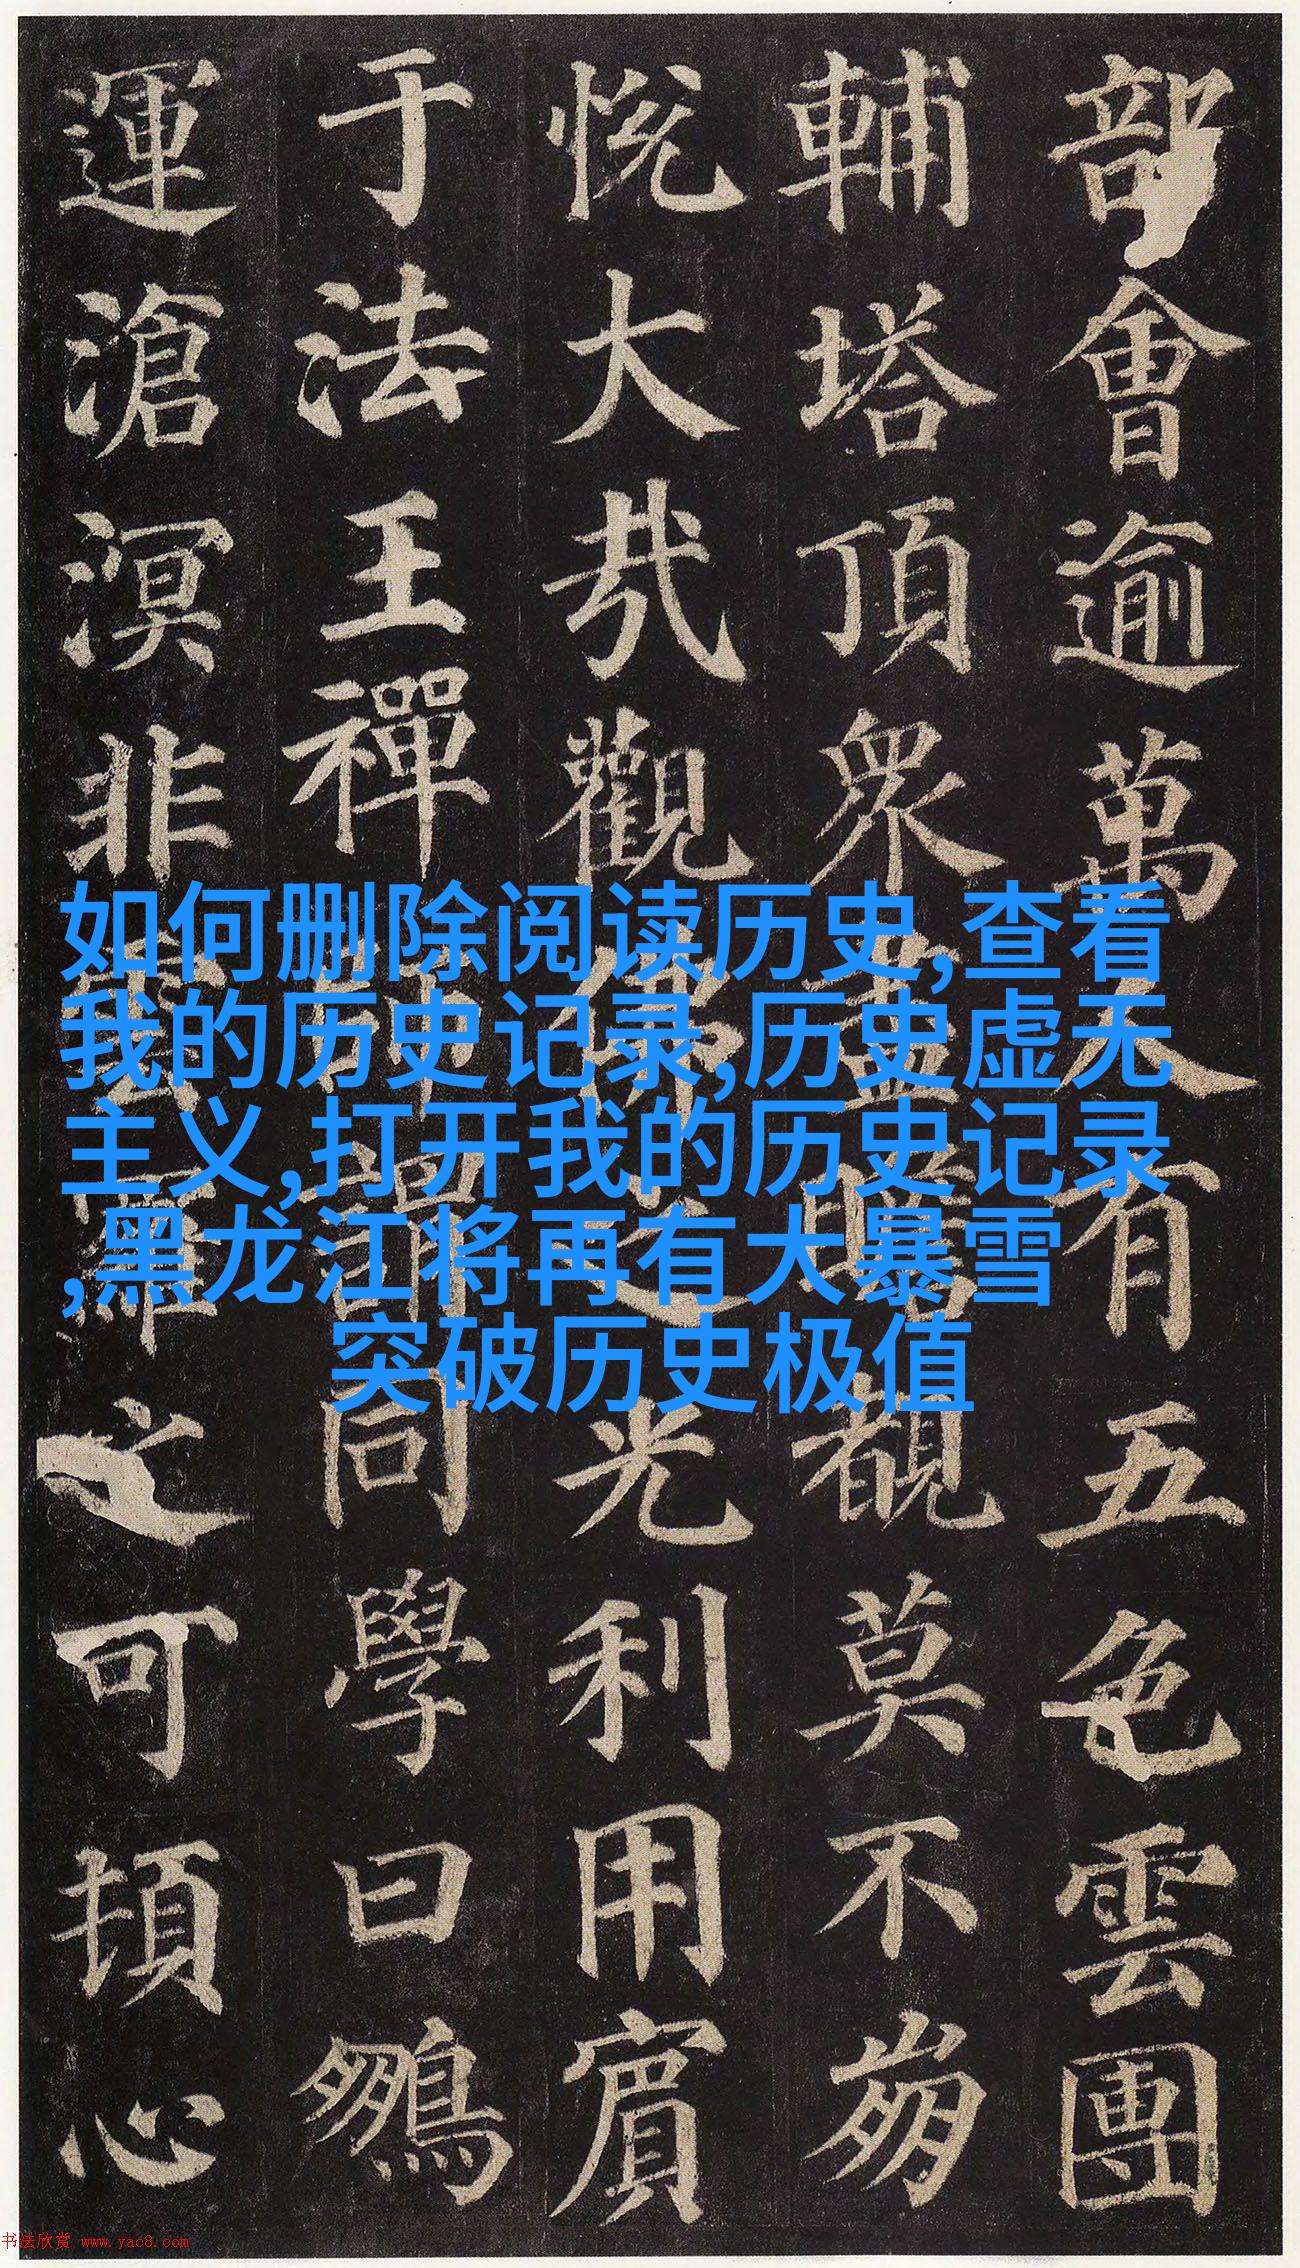 部會逾萬人有五色雲團
輔塔頂眾盡瞻覩莫不崩
悅大哉觀佛之光利用賓
于法王禪師謂同學曰鵬
運滄溟非雲羅之可頓心
如何删除阅读历史,查看
我的历史记录,历史虚无
主义,打开我的历史记录
,黑龙江将再有大暴雪
突破历史极值
书法欣赏 www.yac8.com